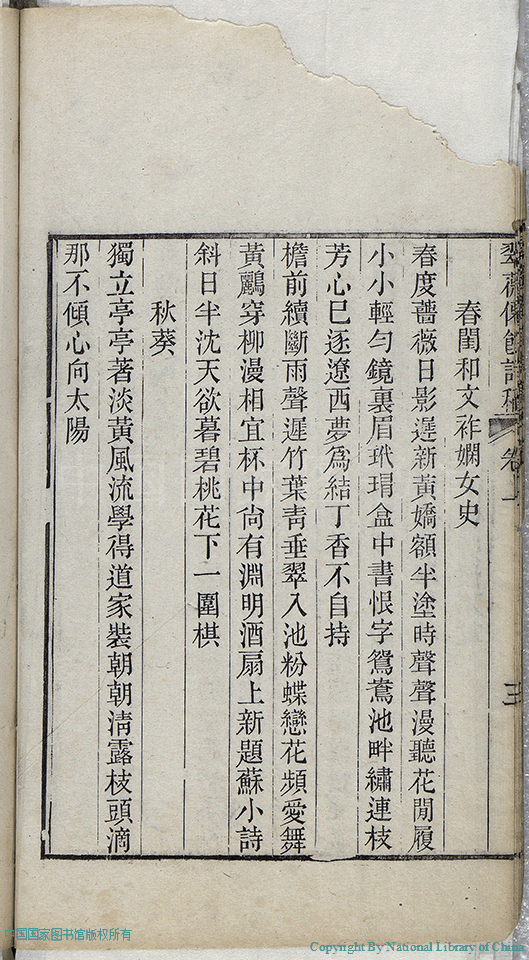 春閨和文祚嫻女史
春度薔薇日影遲新黃嬌額半塗時聲聲漫聽花間履
小小輕勻鏡裏眉玳瑁盒中書恨字鴛鴦池畔繡連枝
芳心已逐遼西夢為結丁香不自持
檐前續斷雨聲遲竹葉靑垂翠入池粉蝶戀花頻愛舞
黃鸝穿柳漫相宜杯中尙有淵明酒扇上新題蘇小詩
斜日半沈天欲暮碧桃花下一圍棋
秋葵
獨立亭亭著淡黃風流學得道家裝朝朝淸露枝頭滴
那不傾心向太陽
中国国家图书馆版权所有
Copyright By National Library of China